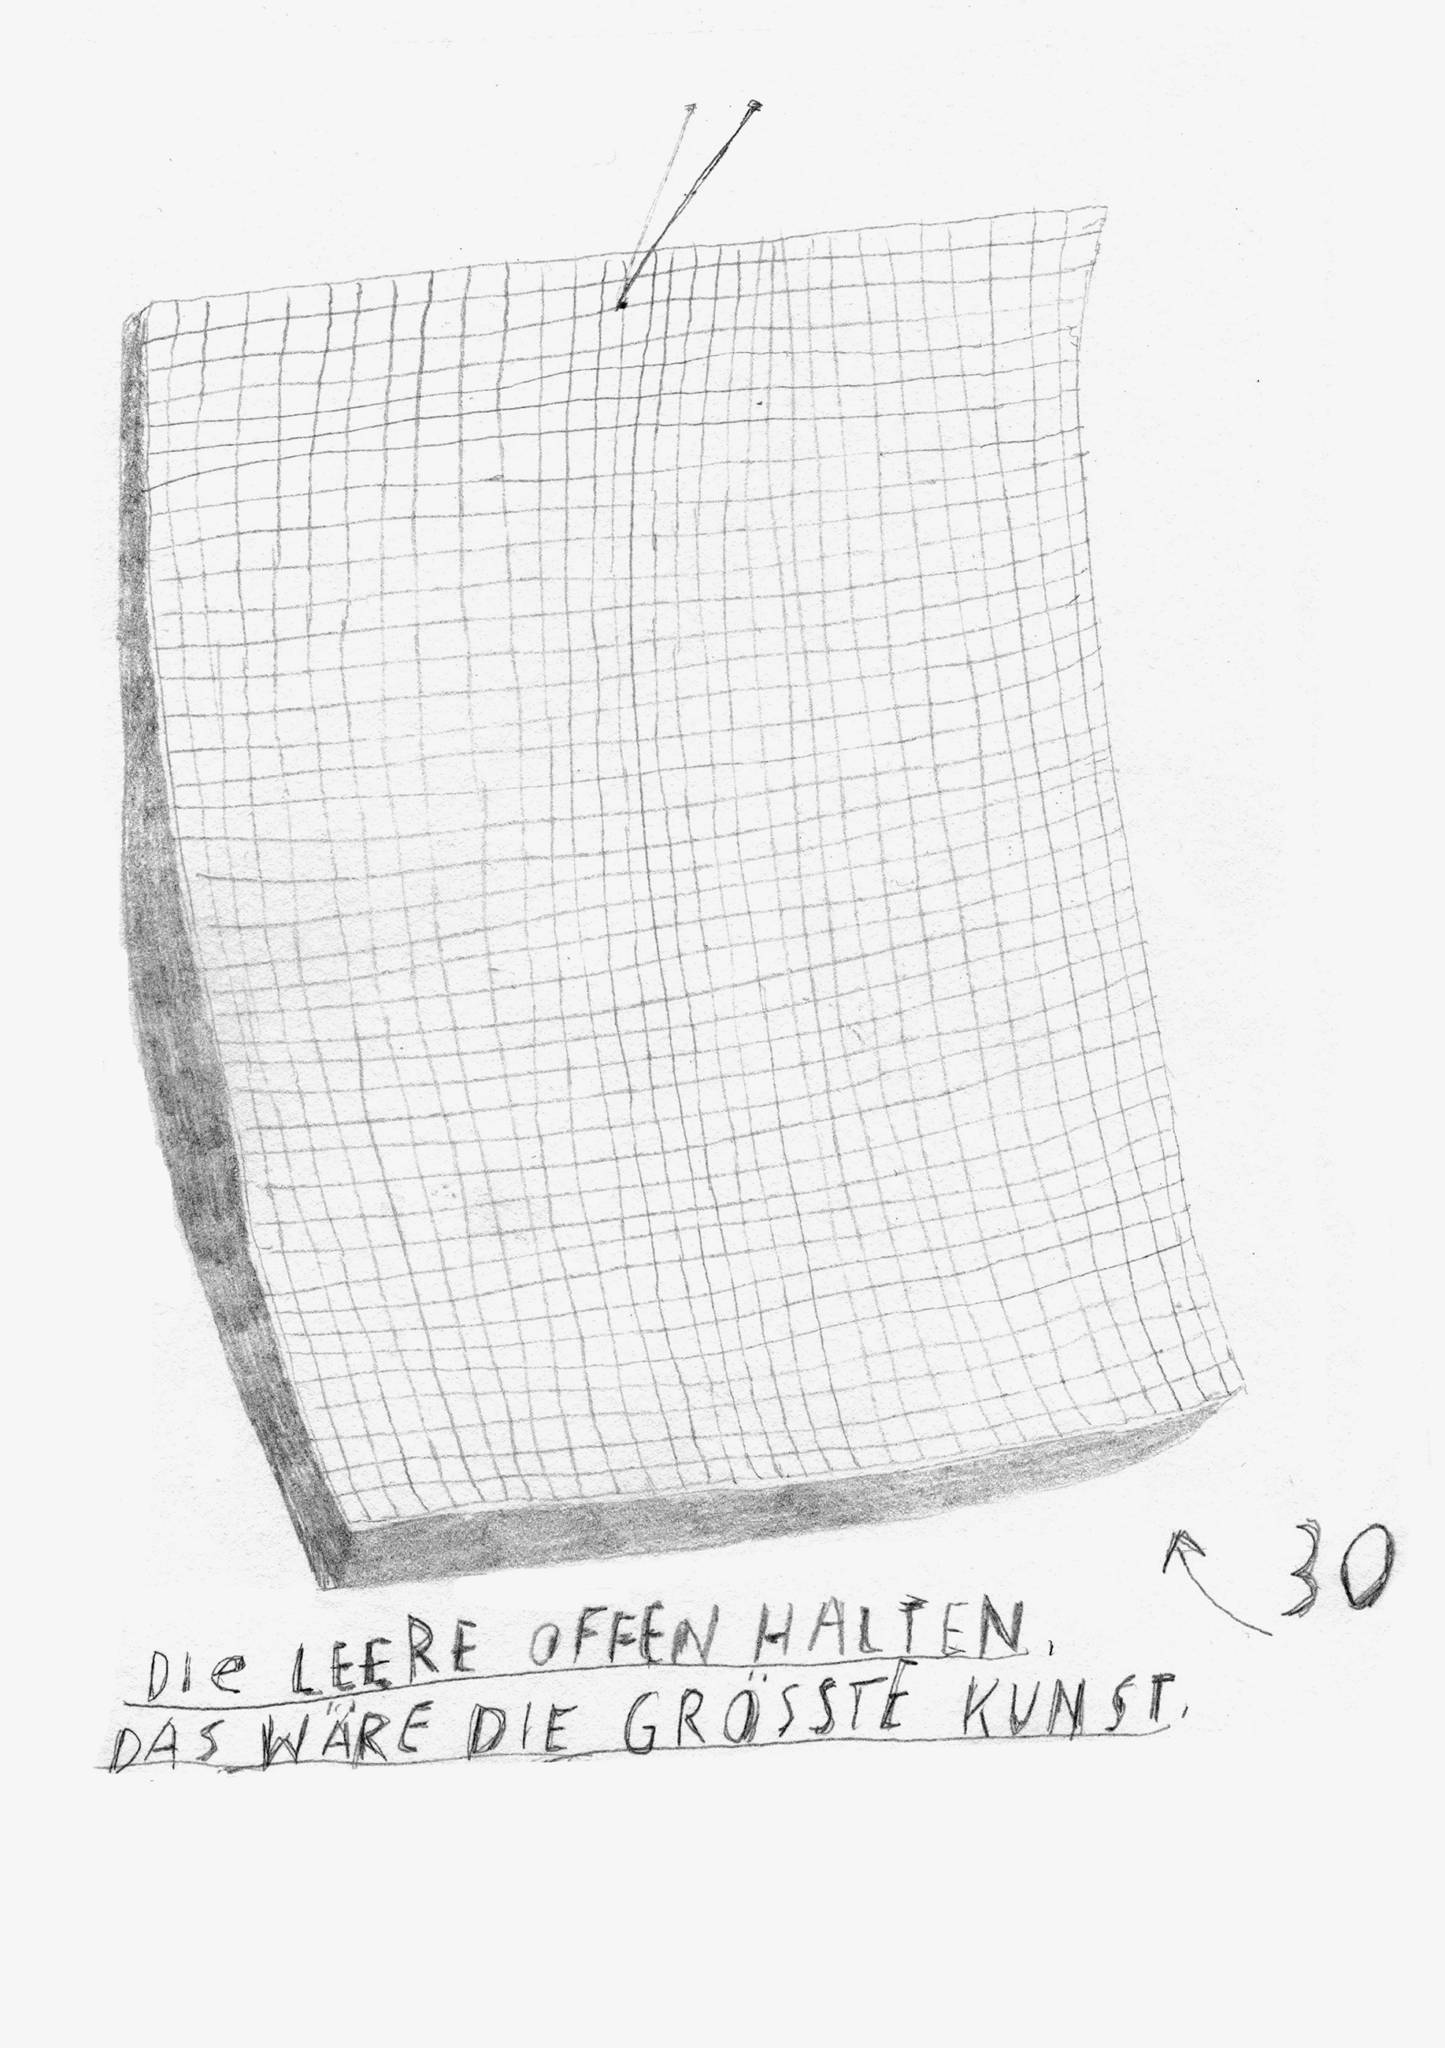 30
DIe LEERE OFFEN HALTEN.
DAS WÄRE DIE GRÖSSTE KUNST.